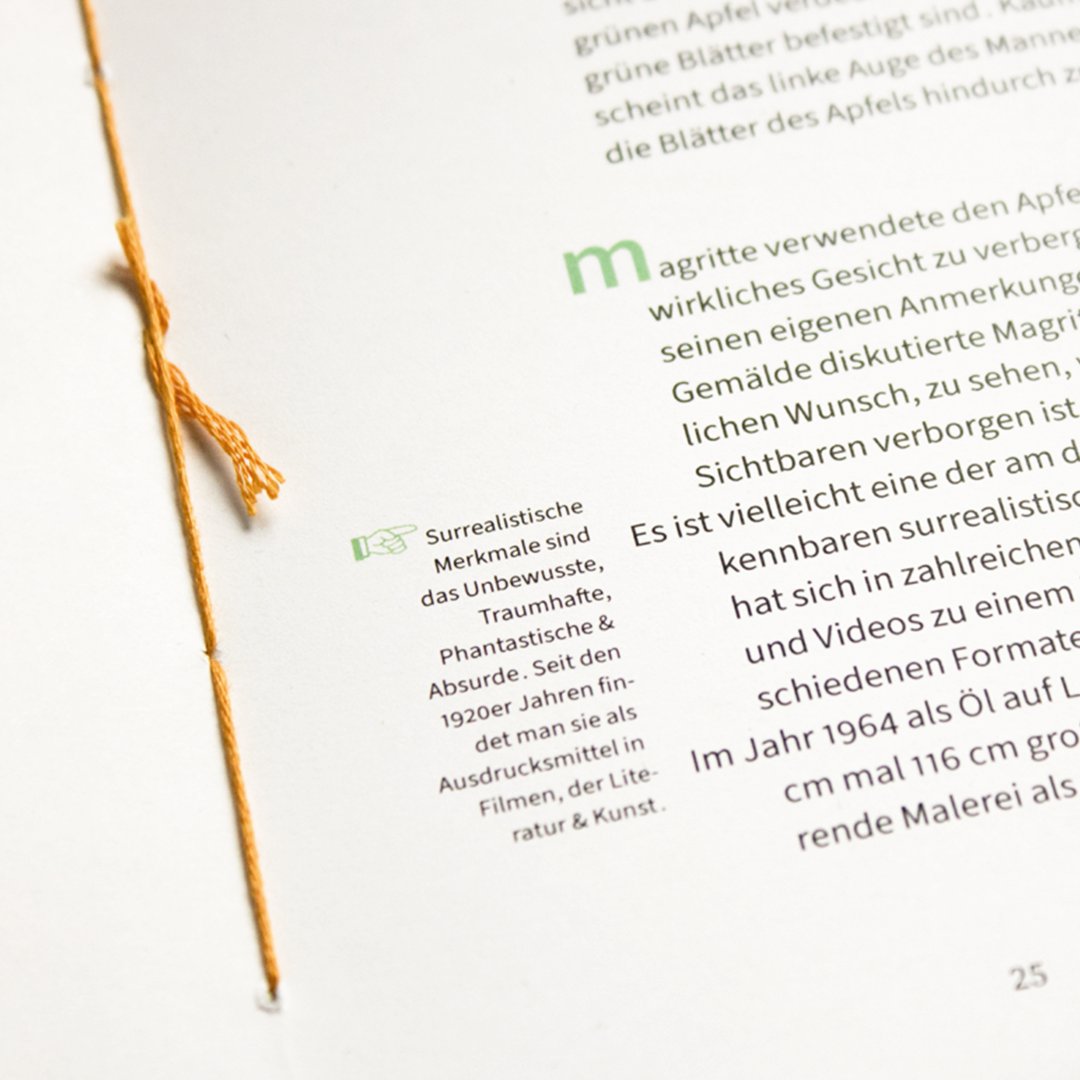 grünen Apfel
grüne Blätter befestigt sind. Kaum
scheint das linke Auge des Manne
die Blätter des Apfels hindurch z
magritte verwendete den Apfe
wirkliches Gesicht zu verberg
seinen eigenen Anmerkunge
Gemälde diskutierte Magrit
lichen Wunsch, zu sehen,
Sichtbaren verborgen ist
Es ist vielleicht eine der am d
kennbaren surrealistisc
hat sich in zahlreichen
und Videos zu einem
schiedenen Formate
Im Jahr 1964 als Öl auf L
cm mal 116 cm gro
rende Malerei als
Surrealistische
Merkmale sind
das Unbewusste,
Traumhafte,
Phantastische &
Absurde. Seit den
1920er Jahren fin-
det man sie als
Ausdrucksmittel in
Filmen, der Lite-
ratur & Kunst.
25